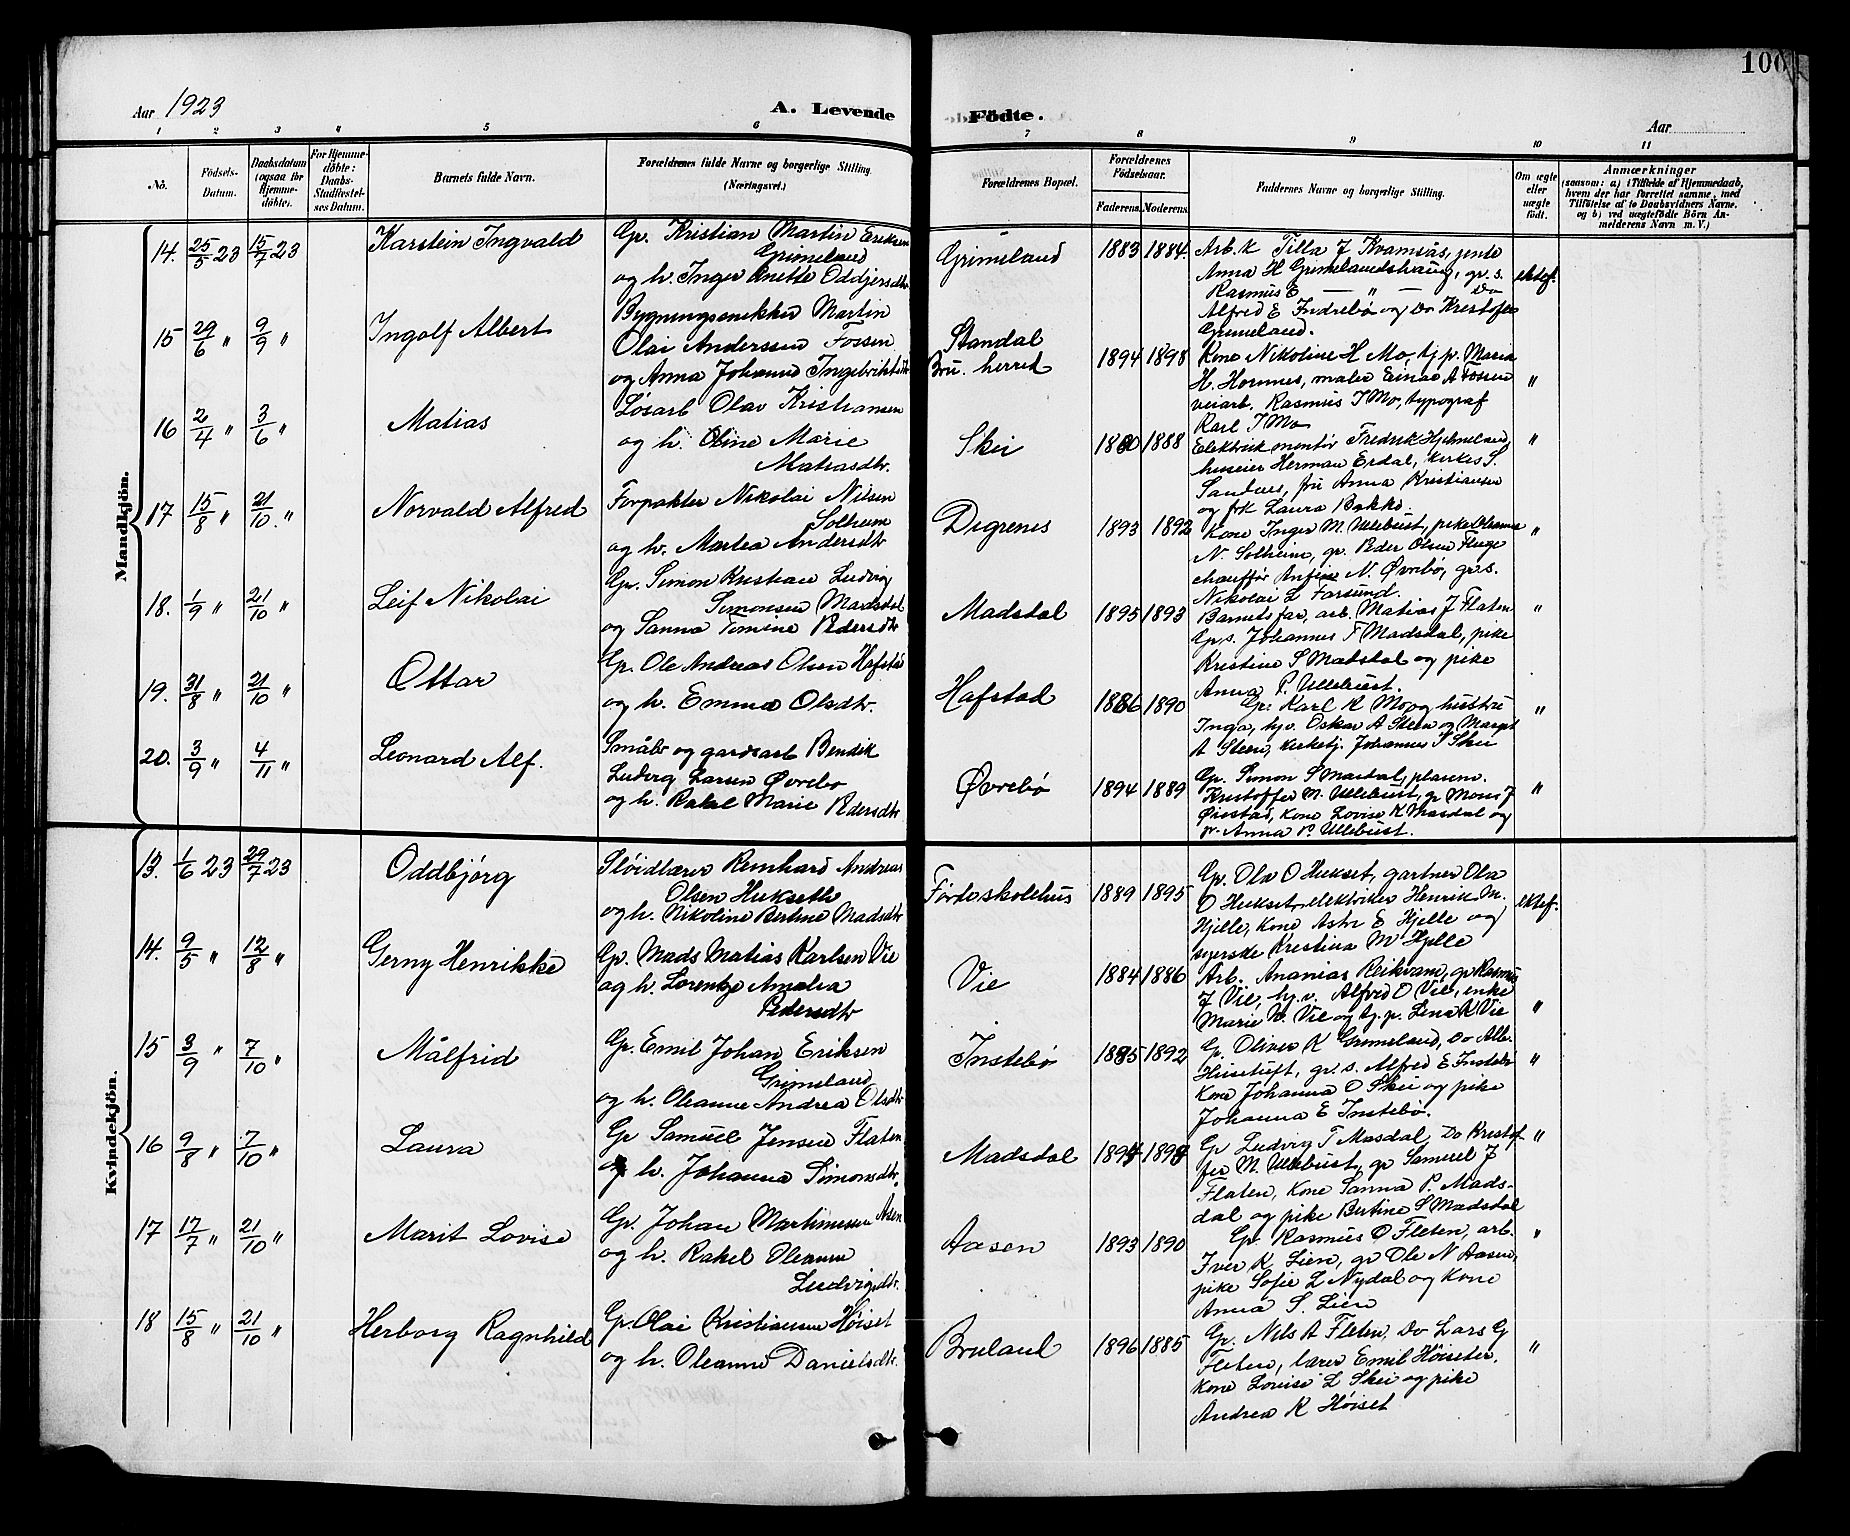 100
Aar 1923
A. Levende
Födte.
Aar
1 2 3 4 5 6 7 8 9 10 11
No.
Födsels-
Datum.
Daabsdatum
(ogsaa for
Hjemme-
döbte).
For Hjemme-
döbte:
Daabs-
Stadfæstel-
ses Datum.
Barnets fulde Navn.
Forældrenes fulde Navne og borgerlige Stilling.
(Næringsvei.)
Forældrenes Bopæl.
Forældrenes
Födselsaar.
Faderens. Moderens.
Faddernes Navne og borgerlige Stilling.
Om ægte
eller
uægte
födt.
Anmærkninger
(saasom: a) i Tilfælde af Hjemmedaab,
hvem der har forrettet samme, med
Tilföielse af to Daabsvidners Navne,
og b) ved uægtefödte Börn An-
melderens Navn m. V.)
Mandkjön.
14. 25/5 23 15/7 23 Karstein Ingvald
Gp. Kristian Martin Eriksen
Grimeland
og h. Inger Anette Oddgjersdtr
Grimeland 1883 1884 ektef.
Arb. k Tilla J Kvamsås, jente
Anna H Grimelandshaug, gp. s.
Rasmus E — " — Do
Alfred E Indrebø og Do Kristofer
Grimeland.
15 29/6 " 9/9 " Ingolf Albert
Bygningssnikker Martin
Olai Anderssen Fossen
og Anna Johanne Ingebriktsdtr
Standal
Bru. herred 1894 1898 "
Kone Nikoline H Mo, tj. p. Maria
H. Hornnes, maler Einar A Fossen
veiarb. Rasmus I Mo, typograf
Karl I Mo
16 2/4 " 3/6 " Matias
Løsarb Olav Kristiansen
og h. Oline Marie
Matiasdtr.
Skei 1880 1888 "
Elektrisk montør Fredrik Hjelmeland,
huseier Herman Erdal, kirkes S.
Sandnes, fru Anna Kristiansen
og frk Laura Bakke.
17 15/8 " 21/10 " Norvald Alfred
Forpakter Nikolai Nilsen
Solheim
og h. Martea Andersdtr
Digrenes 1893 1892 "
Kone Inger M. Ullebust, pike Oleanna
N. Solheim, gp. Peder Olsen Fluge
chauffør Anfin N. Øvrebø, gp. s.
Nikolai L Farsund.
18. 1/9 " 21/10 " Leif Nikolai
Gp. Simon Kristian Ludvig
Simonsen Madsdal
og Sanna Timine Pedersdtr
Madsdal 1895 1893 "
Barnets far, arb. Matias J Flaten
Gp. s. Johannes F Madsdal, pike
Kristine S Madsdal og pike
Anna P. Ullebust.
19. 31/8 " 21/10 " Ottar
Gp. Ole Andreas Olsen Hafstad
og h. Emma Olsdtr.
Hafstad 1886 1890 "
Gp. Karl K Mo og hustru
Inga, hjv. Oskar A Steen og Margit
A Steen, kirketj. Johannes I Skei
20. 3/9 " 4/11 " Leonard Alf.
Småbr og gardsarb Bendik
Ludvig Larsen Øvrebø
og h. Rakel Marie Pedersdtr
Øvrebø 1894 1889 "
Gp. Simon S Masdal, plassm.
Kristoffer M. Ullebust, gp Mons J
Øirstad, kone Lovise K Masdal og
p. Anna P. Ullebust.
Kvindekjön.
13. 1/6 23 29/7 23 Oddbjørg
Sløidlærer Reinhard Andreas
Olsen Hukseth
og h. Nikoline Bertine Madsdtr
Førde skolehus 1889 1895 ektef.
Gp. Ola O Hukset, gartner Ola
O Hukset, elektriker Henrik M.
Hjelle, kone Astri E Hjelle og
syerske Kristina M Hjelle
14. 9/5 " 12/8 " Gerny Henrikke
Gp. Mads Matias Karlsen Vie
og h. Lorentze Amalia
Pedersdtr
Vie 1884 1886 "
Arb. Ananias Reikvam, gp Rasmus
J Vie, hj. v. Alfred O Vie, enke
Marie N. Vie og tj. p. Lena K Vie
15 3/9 " 7/10 " Målfrid
Gp. Emil Johan Eriksen
Grimeland
og h. Oleanne Andrea Olsdtr
Instebø 1885 1892 "
Gp. Oliver K Grimeland, Do Alb.
Husetuft, gp. s. Alfred E Instebø
Kone Johanna O Skei og pike
Johanna E Instebø.
16 9/8 " 7/10 " Laura
Gp Samuel Jensen Flaten
og h. Johanna Simonsdtr.
Madsdal 1894 1898 "
Gp Ludvig T Masdal, Do Kristof-
fer M. Ullebust, gp Samuel J
Flaten, kone Sanna P. Mads-
dal og pike Bertine S Madsdal
17 17/7 " 21/10 " Marit Lovise
Gp. Johan Martinussen Åsen
og h. Rakel Oleanna
Ludvigsdtr.
Aasen 1893 1890 "
Gp. Rasmus O Fleten, arb.
Iver K Lien, gp Ole N Aasen,
pike Sofie L Nydal og kone
Anna S. Lien
18 15/8 " 21/10 " Herborg Ragnhild
Gp. Olai Kristiansen Høiset
og h. Oleanne Danielsdtr.
Bruland 1896 1885 "
Gp. Nils A Fleten, Do Lars G
Fleten, lærer Emil Høiseter,
kone Lovise L Skei og pike
Andrea K Høiset